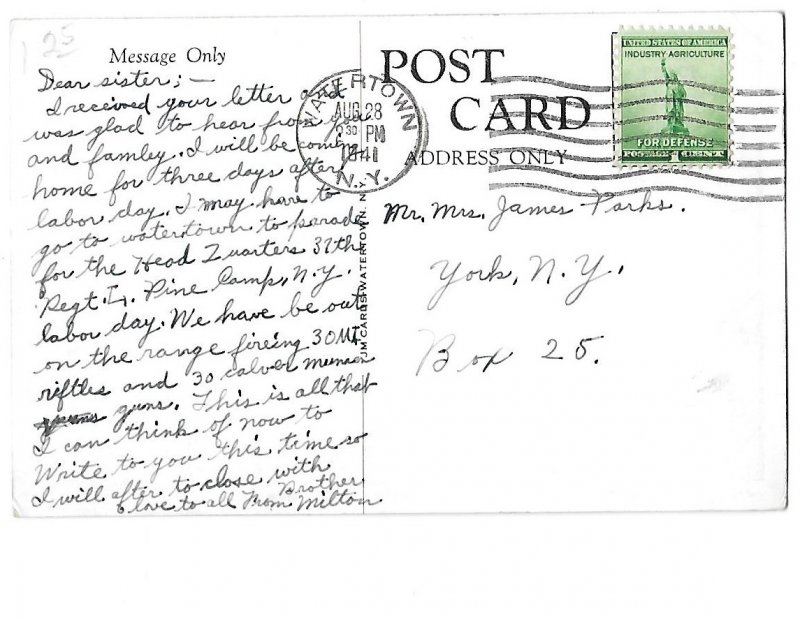 25
Message Only
Dear sister; —
I received your letter and
was glad to hear from you
and famley. I will be coming
home for three days after
labor day. I may have to
go to watertown to parade
for the Head Quarters 37th
Regt. Pine Camp, N.Y.
labor day. We have be out
on the range fireing 30 M1
riftles and 30 calver
guns. This is all that
I can think of now to
Write to you this time so
I will after to close with
love to all From Brother Milton
POST
CARD
ADDRESS ONLY
WATERTOWN
AUG 28
30 PM
1941
N.Y.
UNITED STATES OF AMERICA
INDUSTRY·AGRICULTURE
FOR DEFENSE
1 CENT
CARDS WATERTOWN, N.Y.
Mr. Mrs. James Parks.
York, N.Y.
Box 25.